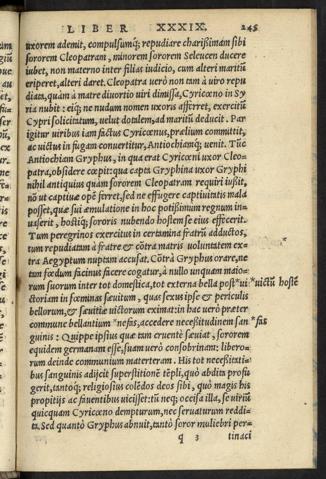 LIBER XXXIX. 245
uxorem ademit, compulsumq; repudiare charißimam sibi
sororem Cleopatram, minorem sororem Seleucen ducere
iubet, non materno inter filias iudicio, cum alteri maritũ
eriperet, alteri daret. Cleopatra uerò non tam à uiro repu
diata, quàm à matre diuortio uiri dimissa, Cyricœno in Sy
ria nubit: eiq; ne nudum nomen uxoris afferret, exercitũ
Cypri solicitatum, uelut dotalem, ad maritũ deducit. Par
igitur uiribus iam factus Cyricœnus, prælium committit,
ac uictus in fugam conuertitur, Antiochiamq; uenit. Tũc
Antiochiam Gryphus, in qua erat Cyricœni uxor Cleo-
patra, obsidere cœpit: qua capta Gryphina uxor Gryphi
nihil antiquius quàm sororem Cleopatram requiri iußit,
nõ ut captiuæ opẽ ferret, sed ne effugere captiuitatis mala
posset, quæ sui æmulatione in hoc potißimum regnum in-
uaserit, hostiq; sororis nubendo hostem se eius effecerit.
Tum peregrinos exercitus in certamina fratrũ adductos,
tum repudiatam à fratre & cõtra matris voluntatem ex-
tra Aegyptum nuptam accusat. Cõtrà Gryphus orare, ne
tam fœdum facinus facere cogatur, à nullo unquam maio-
rum suorum inter tot domestica, tot externa bella post *ui *uictũ hostẽ
ctoriam in fœminas sæuitum, quas sexus ipse & periculis
bellorum, & sæuitiæ uictorum eximat: in hac uerò præter
commune bellantium *nefas, accedere necesitudinem san *fas
guinis: Quippe ipsius quæ tam cruentè sæuiat, sororem
equidem germanam esse, suam uerò consobrinam: libero-
rum deinde communium materteram. His tot necesitati-
bus sanguinis adijcit superstitionẽ tẽpli, quò abdita profu
gerit, tantoq; religiosius colẽdos deos sibi, quò magis his
propitijs ac fauentibus uicisset: tũ neq; occisa illa, se uirũ
quicquam Cyricœno dempturum, nec seruaturum reddi-
ta. Sed quantò Gryphus abnuit, tantò soror muliebri per-
q 3 tinaci